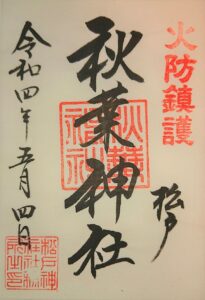 火防鎮護
松戸
秋葉神社
令和四年五月四日
秋葉神社
松戸神社